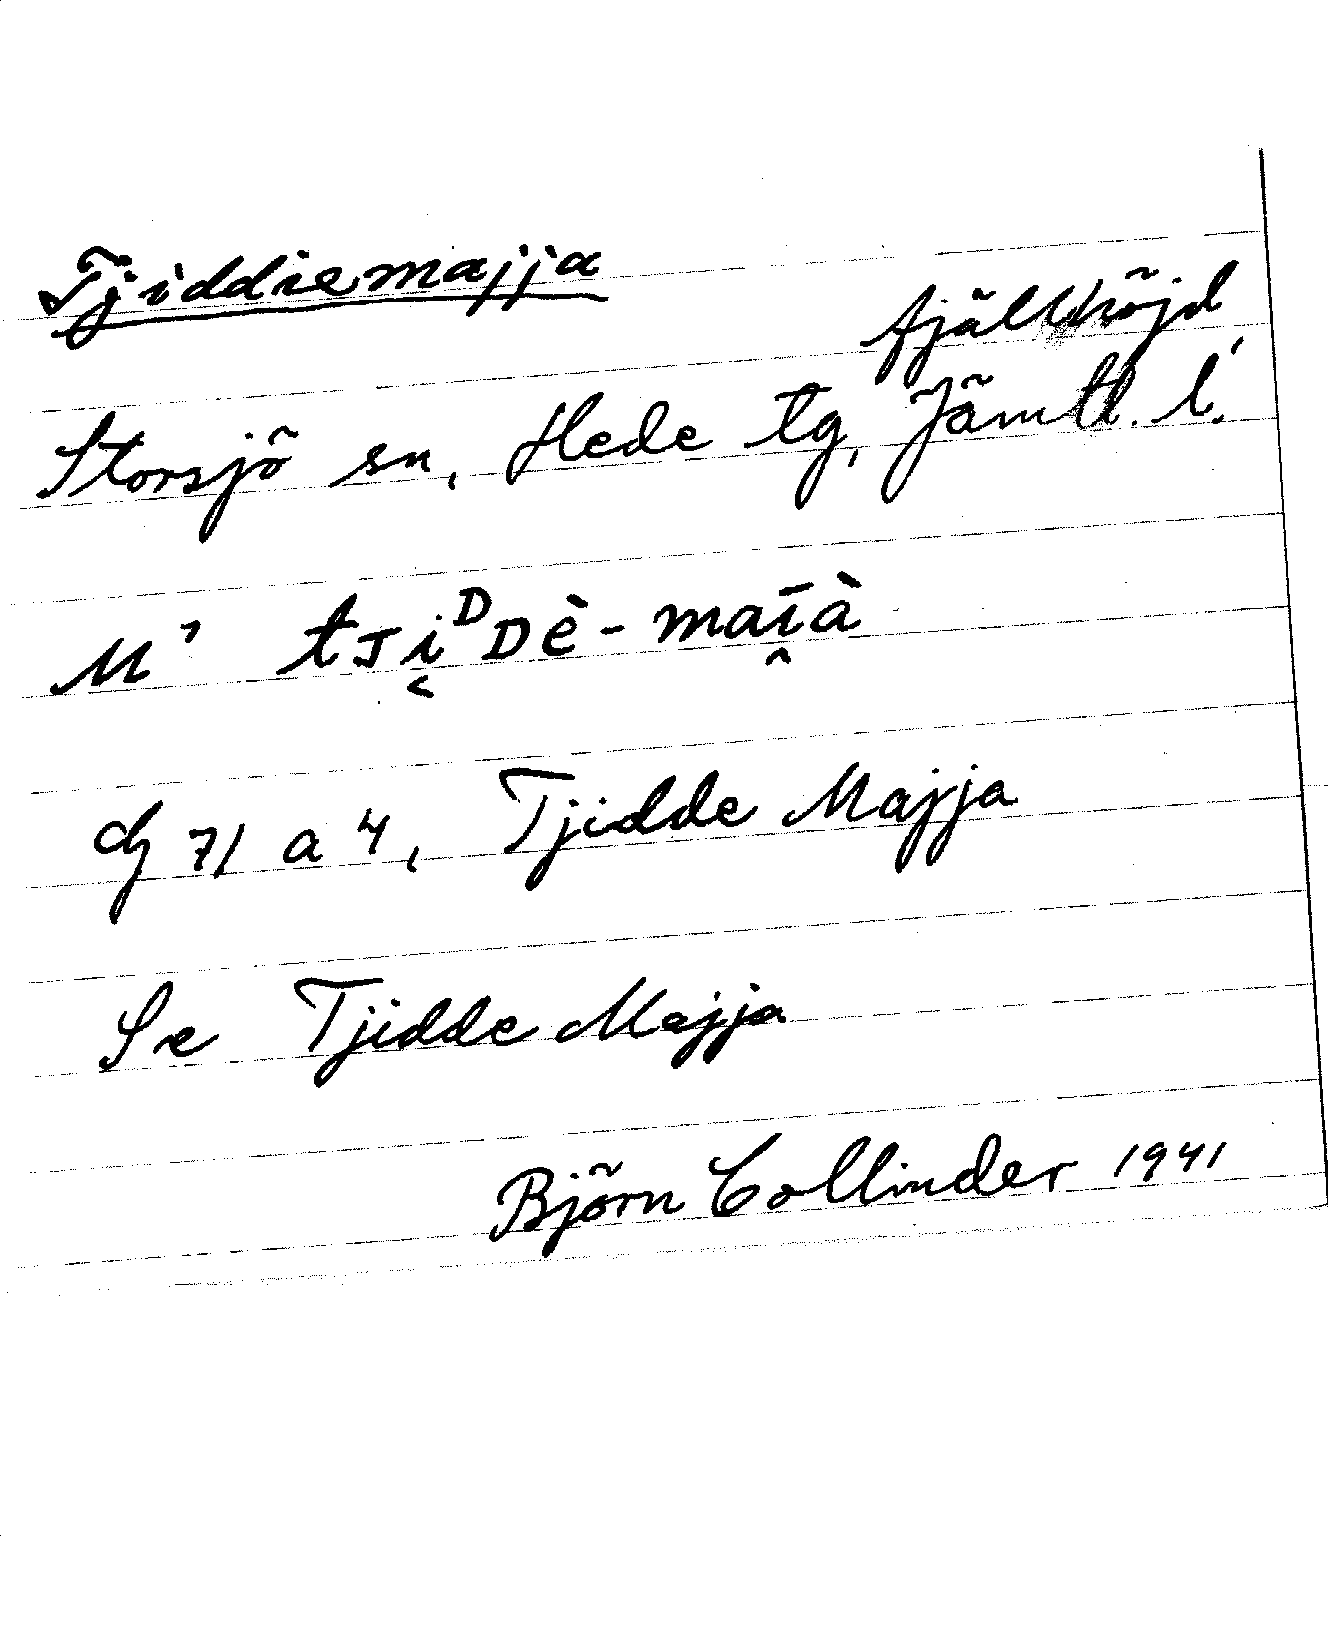 Tjiddiemajja
fjällhöjd
Storsjö sn, Hede tg, Jämtl. l.
M' tᴊi̬ᴰᴅè-maī̯à
Gj 71 a 4, Tjidde Majja
Se Tjidde Majja
Björn Collinder 1941